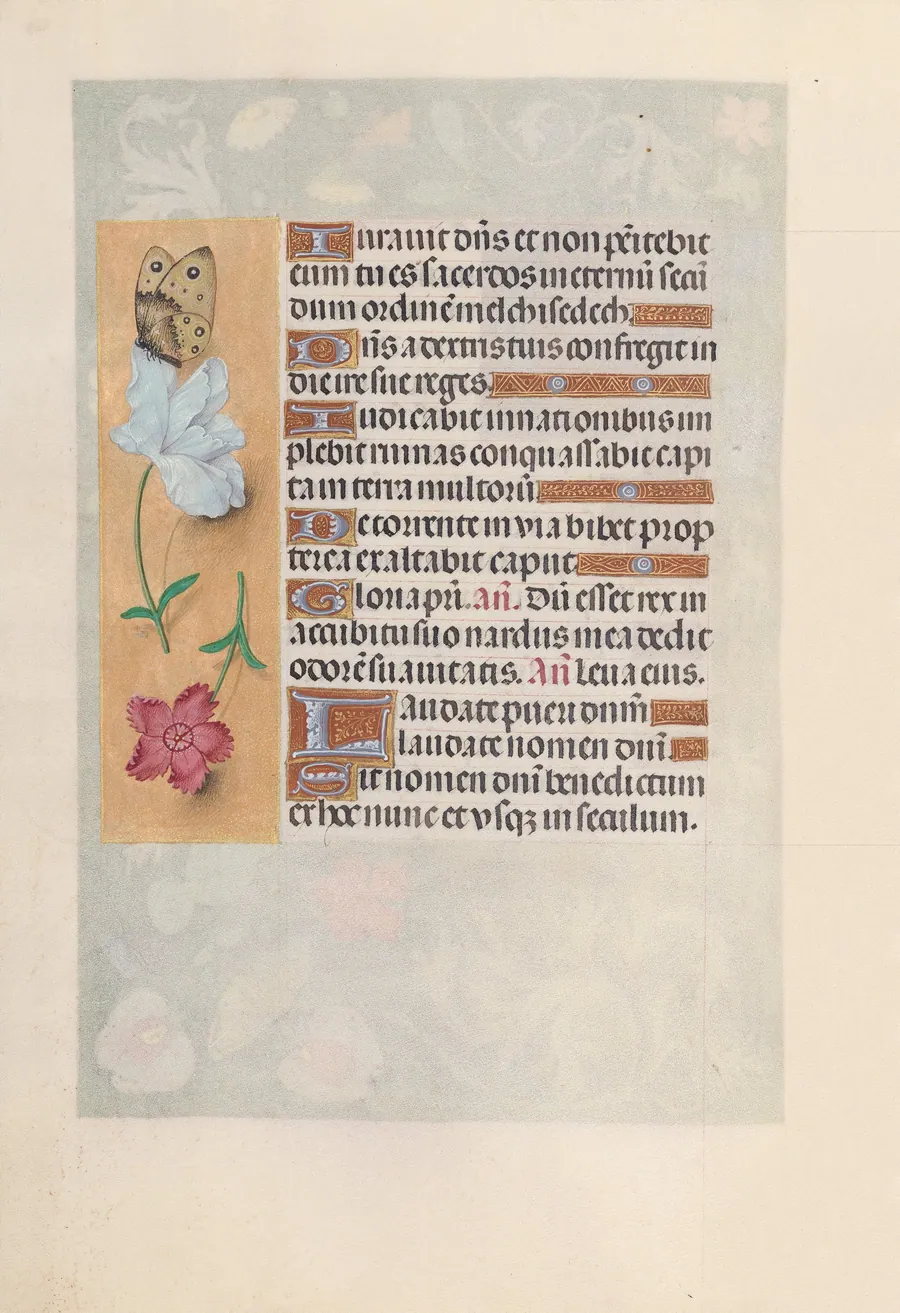 Iurauit dn̄s et non pēitebit
eum tu es sacerdos in eternū secū
dum ordinē melchisedech
Dn̄s a dextris tuis confregit in
die ire sue reges.
Iudicabit in nationibus im
plebit ruinas conquassabit capi
ta in terra multorū.
De torrente in via bibet prop
terea exaltabit caput.
Gloria pr̄i. an̄. Dū esset rex in
accubitu suo nardus mea dedit
odorē suauitatis. An̄ Leua eius.
Laudate pueri dnm̄
laudate nomen dn̄i.
Sit nomen dn̄i benedictum
ex hoc nunc et vsqꝫ in seculum.